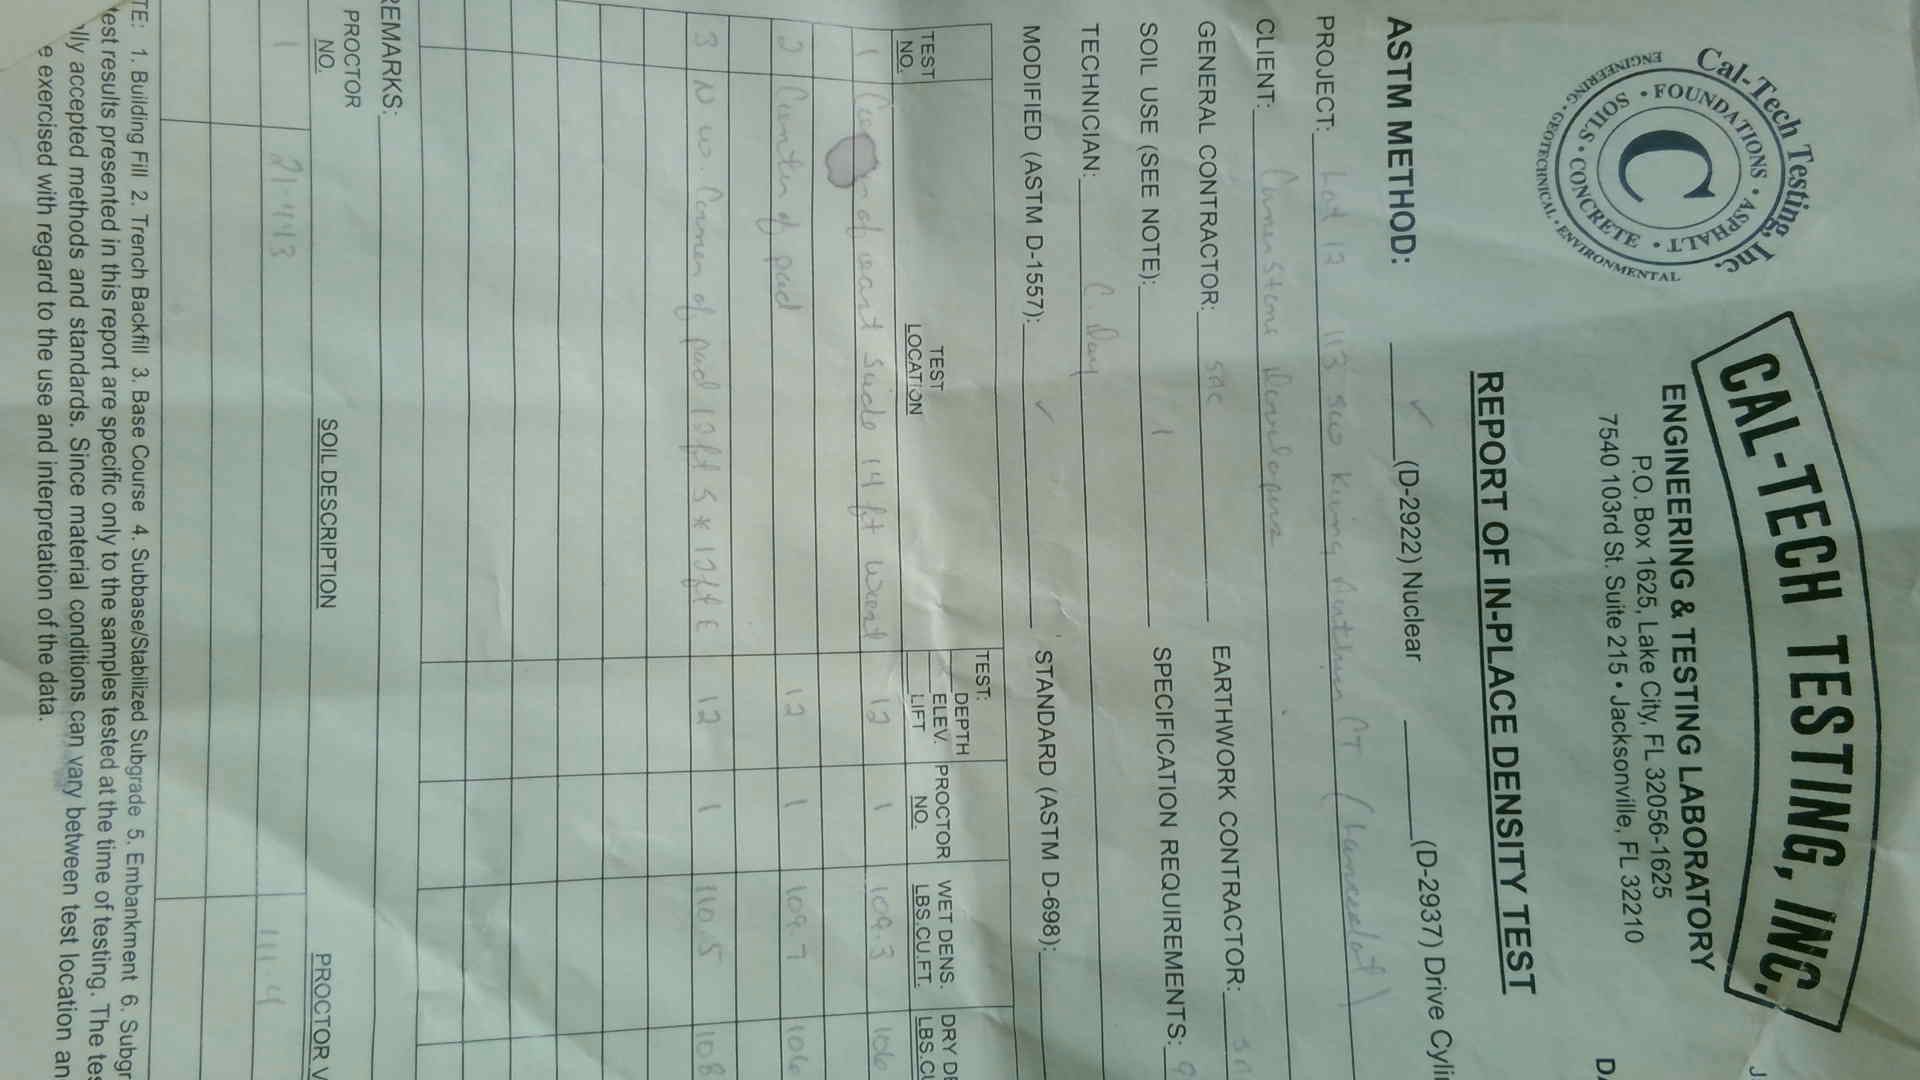 Cal-Tech Testing, Inc.
• FOUNDATIONS • ASPHALT • CONCRETE • SOILS
ENGINEERING • GEOTECHNICAL • ENVIRONMENTAL
C
CAL-TECH TESTING, INC.
ENGINEERING & TESTING LABORATORY
P.O. Box 1625, Lake City, FL 32056-1625
7540 103rd St. Suite 215 • Jacksonville, FL 32210
J
DA
REPORT OF IN-PLACE DENSITY TEST
ASTM METHOD: ✓ (D-2922) Nuclear (D-2937) Drive Cyli
PROJECT: Lot 12 113 SW King Arthur CT (Lancelot)
CLIENT: Cornerstone Developers
GENERAL CONTRACTOR: sac EARTHWORK CONTRACTOR: sa
SOIL USE (SEE NOTE): 1 SPECIFICATION REQUIREMENTS: 9
TECHNICIAN: C. Day
MODIFIED (ASTM D-1557): ✓ STANDARD (ASTM D-698):
TEST NO. TEST LOCATION TEST: DEPTH ELEV. LIFT PROCTOR NO. WET DENS. LBS.CU.FT. DRY DE LBS.CU
1 of east side 14 ft west 12 1 109.3 106
2 Center of pad 12 1 109.7 106
3 N w. Corner of pad 12ft S * 12ft E 12 1 110.5 108
REMARKS:
PROCTOR NO. SOIL DESCRIPTION PROCTOR V
1 21-443 111.4
TE: 1. Building Fill 2. Trench Backfill 3. Base Course 4. Subbase/Stabilized Subgrade 5. Embankment 6. Subgr
est results presented in this report are specific only to the samples tested at the time of testing. The tes
lly accepted methods and standards. Since material conditions can vary between test location an
e exercised with regard to the use and interpretation of the data.